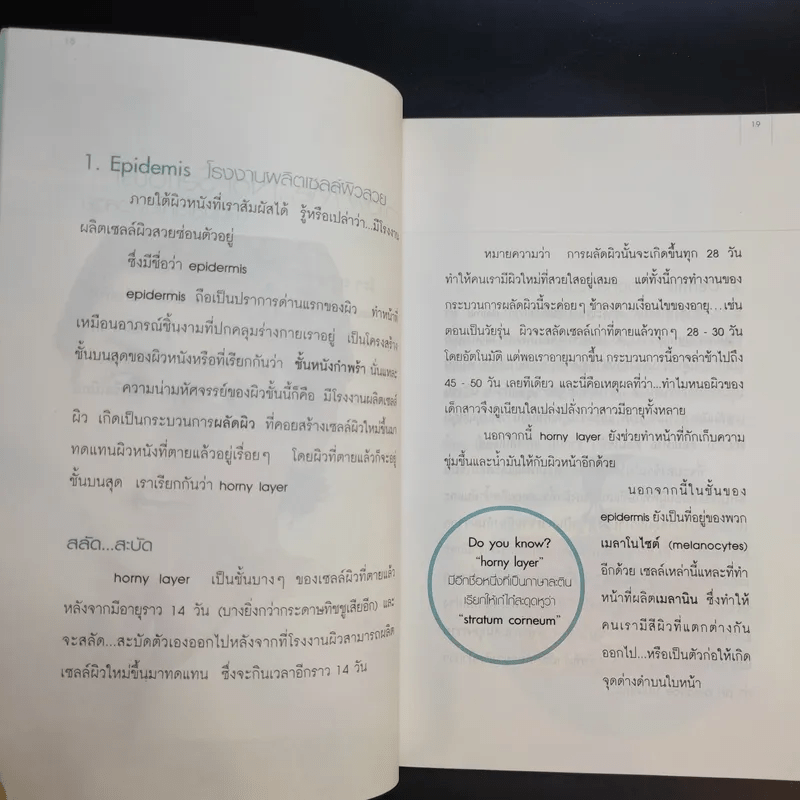 18
1. Epidemis โรงงานผลิตเซลล์ผิวสวย
ภายใต้ผิวหนังที่เราสัมผัสได้ รู้หรือเปล่าว่า...มีโรงงาน
ผลิตเซลล์ผิวสวยซ่อนตัวอยู่
ซึ่งมีชื่อว่า epidermis
epidermis ถือเป็นปราการด่านแรกของผิว ทำหน้าที่
เหมือนอาภรณ์ชิ้นงามที่ปกคลุมร่างกายเราอยู่ เป็นโครงสร้าง
ชั้นบนสุดของผิวหนังหรือที่เรียกกันว่า ชั้นหนังกำพร้า นั่นแหละ
ความน่ามหัศจรรย์ของผิวชั้นนี้ก็คือ มีโรงงานผลิตเซลล์
ผิว เกิดเป็นกระบวนการผลัดผิว ที่คอยสร้างเซลล์ผิวใหม่ขึ้นมา
ทดแทนผิวหนังที่ตายแล้วอยู่เรื่อยๆ โดยผิวที่ตายแล้วก็จะอยู่
ชั้นบนสุด เราเรียกกันว่า horny layer
สลัด...สะบัด
horny layer เป็นชั้นบางๆ ของเซลล์ผิวที่ตายแล้ว
หลังจากมีอายุราว 14 วัน (บางยิ่งกว่ากระดาษทิชชูเสียอีก) และ
จะสลัด...สะบัดตัวเองออกไปหลังจากที่โรงงานผิวสามารถผลิต
เซลล์ผิวใหม่ขึ้นมาทดแทน ซึ่งจะกินเวลาอีกราว 14 วัน
19
หมายความว่า การผลัดผิวนั้นจะเกิดขึ้นทุก 28 วัน
ทำให้คนเรามีผิวใหม่ที่สวยใสอยู่เสมอ แต่ทั้งนี้การทำงานของ
กระบวนการผลัดผิวนี้จะค่อยๆ ช้าลงตามเงื่อนไขของอายุ...เช่น
ตอนเป็นวัยรุ่น ผิวจะสลัดเซลล์เก่าที่ตายแล้วทุกๆ 28 - 30 วัน
โดยอัตโนมัติ แต่พอเราอายุมากขึ้น กระบวนการนี้อาจล่าช้าไปถึง
45 - 50 วัน เลยทีเดียว และนี่คือเหตุผลที่ว่า...ทำไมหนอผิวของ
เด็กสาวจึงดูเนียนใสเปล่งปลั่งกว่าสาวมีอายุทั้งหลาย
นอกจากนี้ horny layer ยังช่วยทำหน้าที่กักเก็บความ
ชุ่มชื้นและน้ำมันให้กับผิวหน้าอีกด้วย
นอกจากนี้ในชั้นของ
epidermis ยังเป็นที่อยู่ของพวก
เมลาโนไซต์ (melanocytes)
อีกด้วย เซลล์เหล่านี้แหละที่ทำ
หน้าที่ผลิตเมลานิน ซึ่งทำให้
คนเรามีสีผิวที่แตกต่างกัน
ออกไป...หรือเป็นตัวก่อให้เกิด
จุดด่างดำบนใบหน้า
Do you know?
"horny layer"
มีอีกชื่อหนึ่งที่เป็นภาษาละติน
เรียกให้เก๋ไก๋สะดุดหูว่า
"stratum corneum"